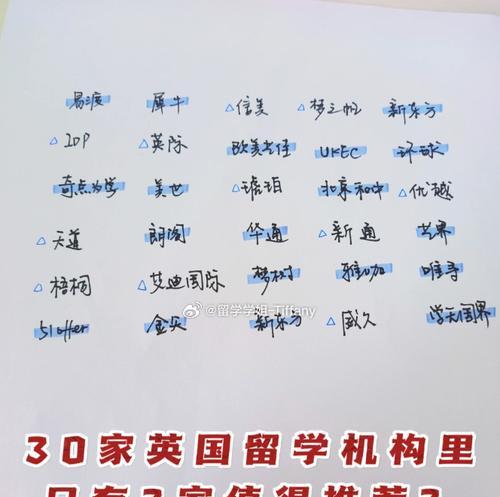 易渡 犀牛 △信美 △梦之帆 新东方
△IDP △英际 欧美世佳 UKEC 环球
奇点留学 美世 △琥珀 北京和中 △优越
△天道 朗阁 华通 △新通 艺界
△梧桐 △艾迪国际 梦树 雅思哥 唯寻
51offer 金矢 新东方 △威久 学无国界
@留学学姐-Tiffany
30家英国留学机构里